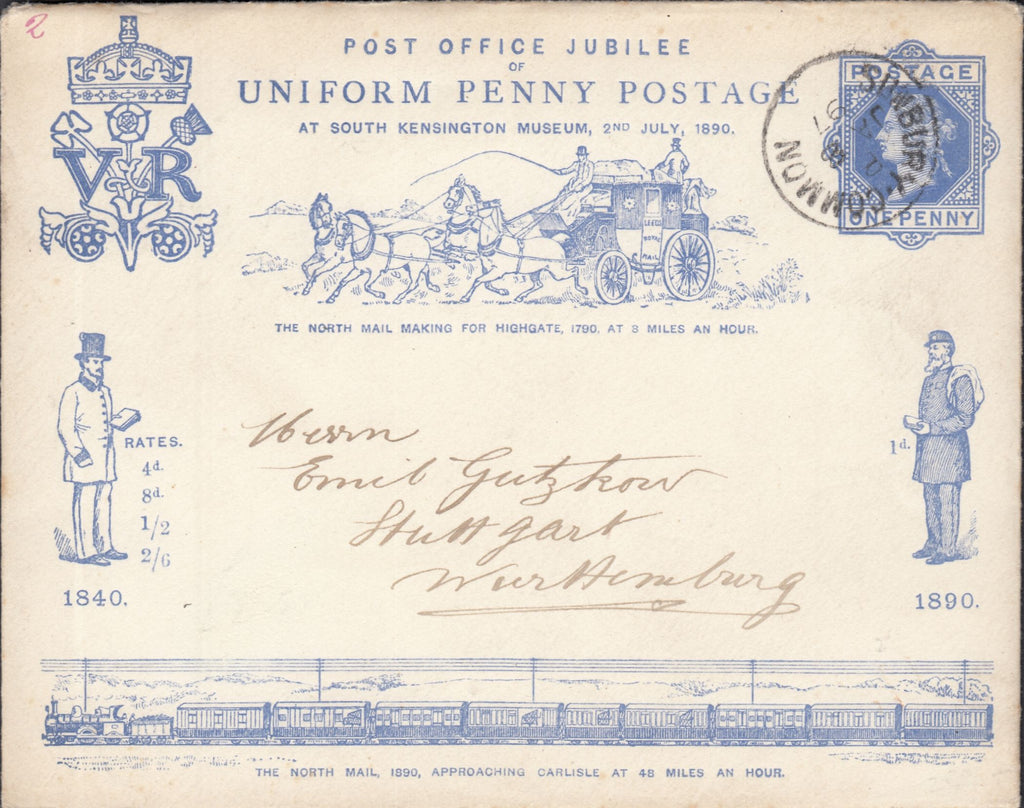 2
POST OFFICE JUBILEE
OF
UNIFORM PENNY POSTAGE
AT SOUTH KENSINGTON MUSEUM, 2ND JULY, 1890.
VR
POSTAGE
ONE PENNY
SUNBURY·COMMON
JA
97
LEEDS
ROYAL
MAIL
THE NORTH MAIL MAKING FOR HIGHGATE, 1790, AT 8 MILES AN HOUR.
RATES.
4d.
8d.
1/2
2/6
1840.
1d.
1890.
Herrn
Emil Gutzkow
Stuttgart
Wurttemburg
THE NORTH MAIL, 1890, APPROACHING CARLISLE AT 48 MILES AN HOUR.